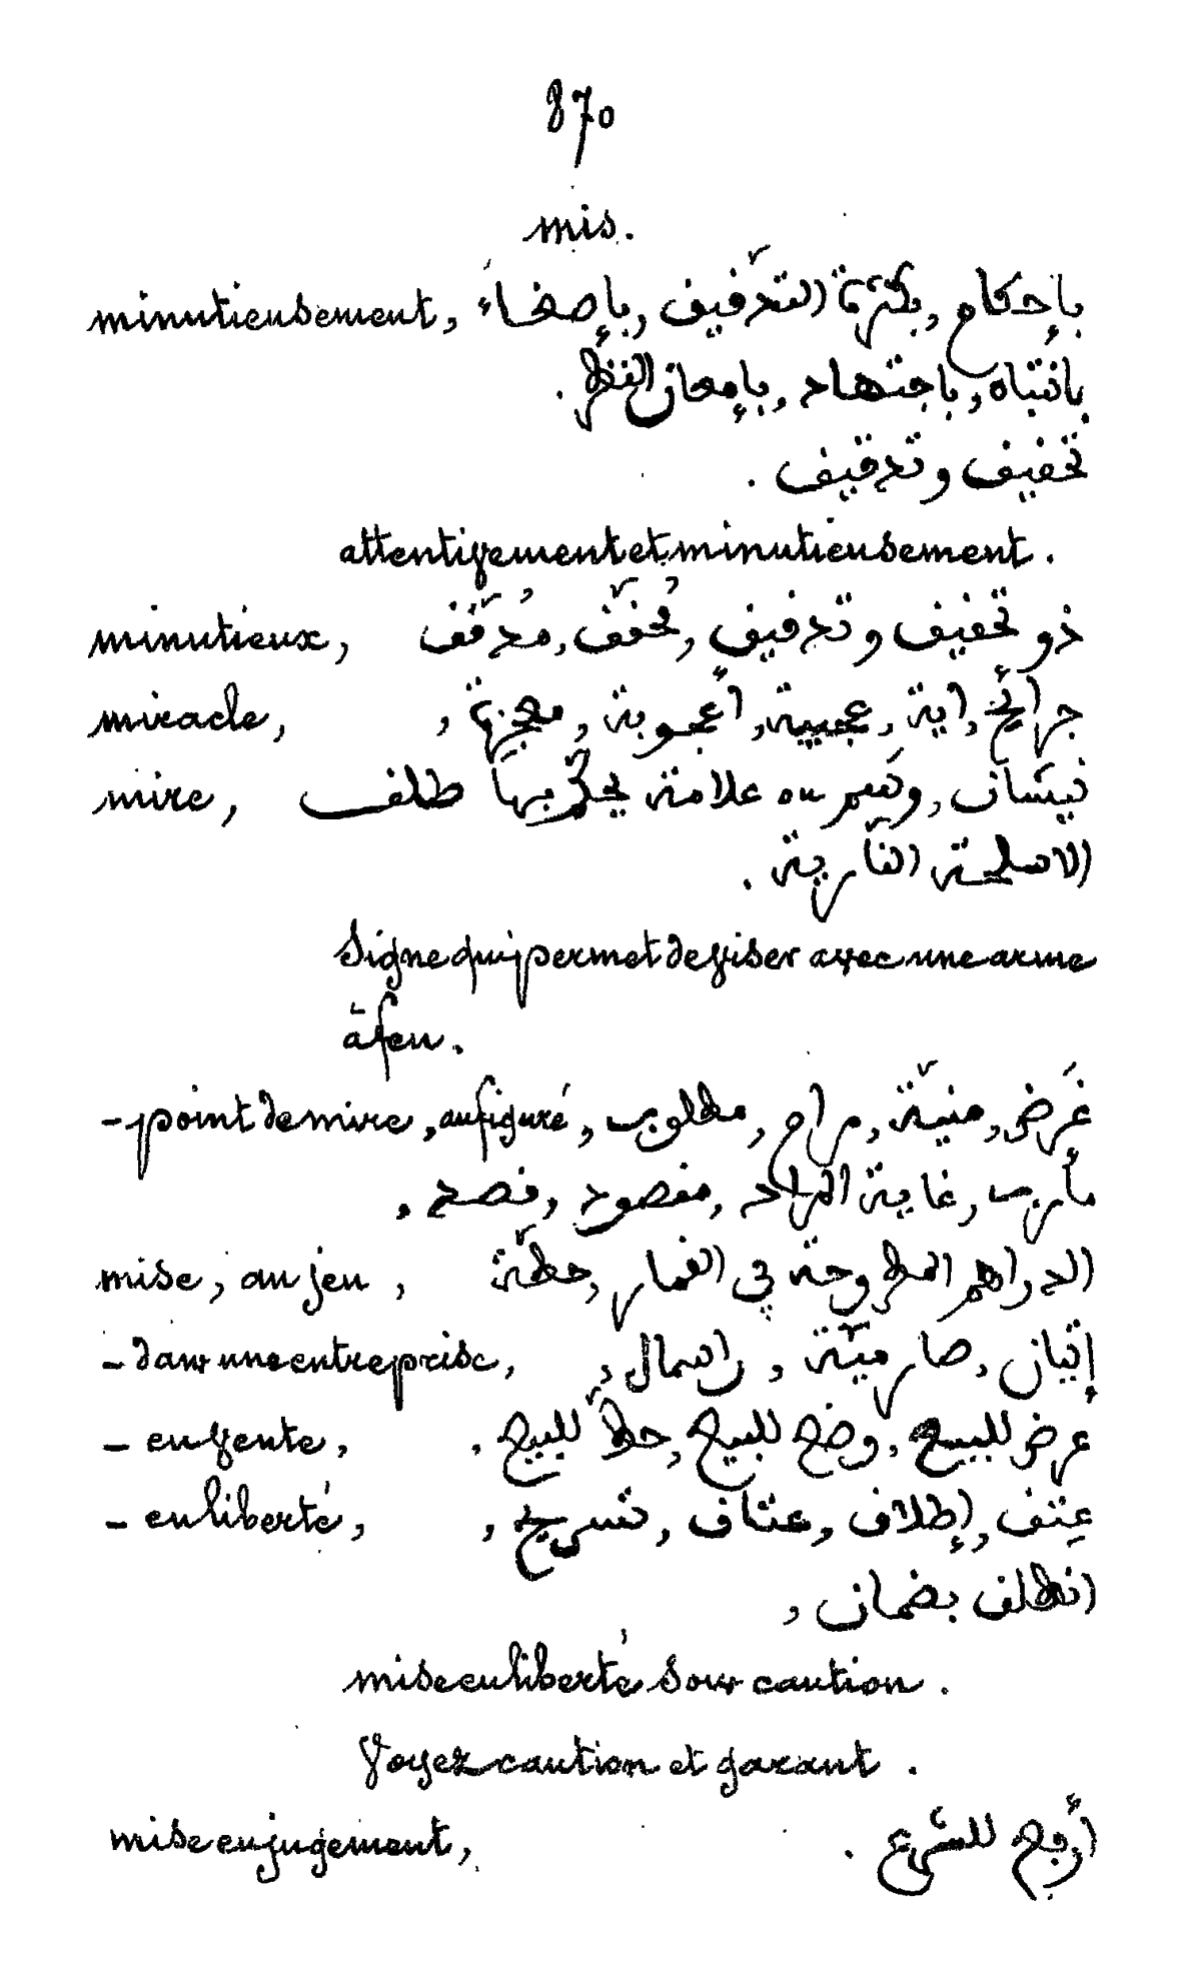 870
mis.
minutieusement, بإحكام, بكثرة التدقيق, بإصغاء
بانتباه, باجتهاد, بإمعان النظر.
تحقيق وتدقيق.
attentivement et minutieusement.
minutieux, ذو تحقيق وتدقيق, مُحقّق, مُدقّق
miracle, اية, عجيبة, أعجوبة, معجزة,
mire, نيشان, ou علامة يحكّم بها طلق
الاسلحة النارية.
Signe qui permet de viser avec une arme
à feu.
- point de mire, au figuré, غَرَض, منيّة, مرام, مطلوب,
مأرب, غاية المراد, مقصود, قصد,
mise, au jeu, الدراهم المطروحة في القمار, حطّة
- dans une entreprise, إتيان, راسمال,
- en vente, عرض للبيع, وضع للبيع, حطّ للبيع,
- en liberté, عِتق, إطلاق, عتاق, تسريح,
انطلق بضمان,
mise en liberté sous caution.
Voyez caution et garant.
mise en jugement, للشرع.